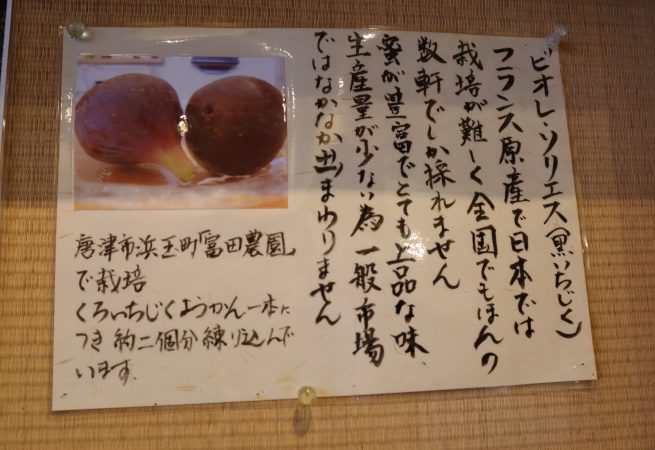 ビオレ・ソリエス（黒いちじく）
フランス原産で日本では
栽培が難しく全国でもほんの
数軒でしか採れません
蜜が豊富でとても上品な味
生産量が少ない為一般市場
ではなかなか出まわりません
唐津市浜玉町「富田農園」
で栽培
くろいちじくようかん一本に
つき約二個分練り込んで
います。